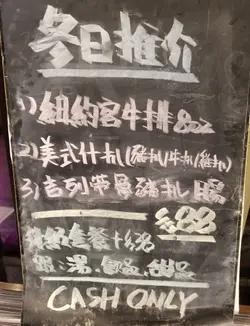 冬日推介
1) 紐約客牛排 8oz
2) 美式什扒(豬扒/牛扒/雞扒)
3) 吉列帶子豬扒腸
$88
套餐
湯 甜品
CASH ONLY